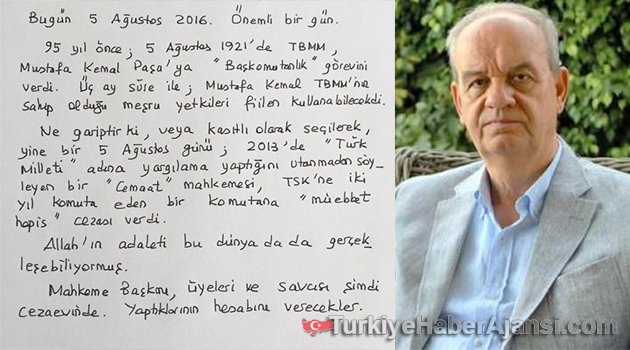 Bugün 5 Ağustos 2016. Önemli bir gün.
95 yıl önce; 5 Ağustos 1921'de TBMM,
Mustafa Kemal Paşa'ya "Başkomutanlık" görevini
verdi. Üç ay süre ile; Mustafa Kemal TBMM'nin
sahip olduğu meşru yetkileri fiilen kullanabilecekdi.
Ne gariptir ki, veya kasıtlı olarak seçilerek,
yine bir 5 Ağustos günü; 2013'de "Türk
Milleti" adına yargılama yaptığını utanmadan söy-
leyen bir "Cemaat" mahkemesi, TSK'ne iki
yıl komuta eden bir komutana "müebbet
hapis" cezası verdi.
Allah'ın adaleti bu dünyada da gerçek-
leşebiliyormuş.
Mahkeme Başkanı, üyeleri ve savcısı şimdi
cezaevinde. Yaptıklarının hesabını verecekler.
TurkiyeHaberAjansi.com